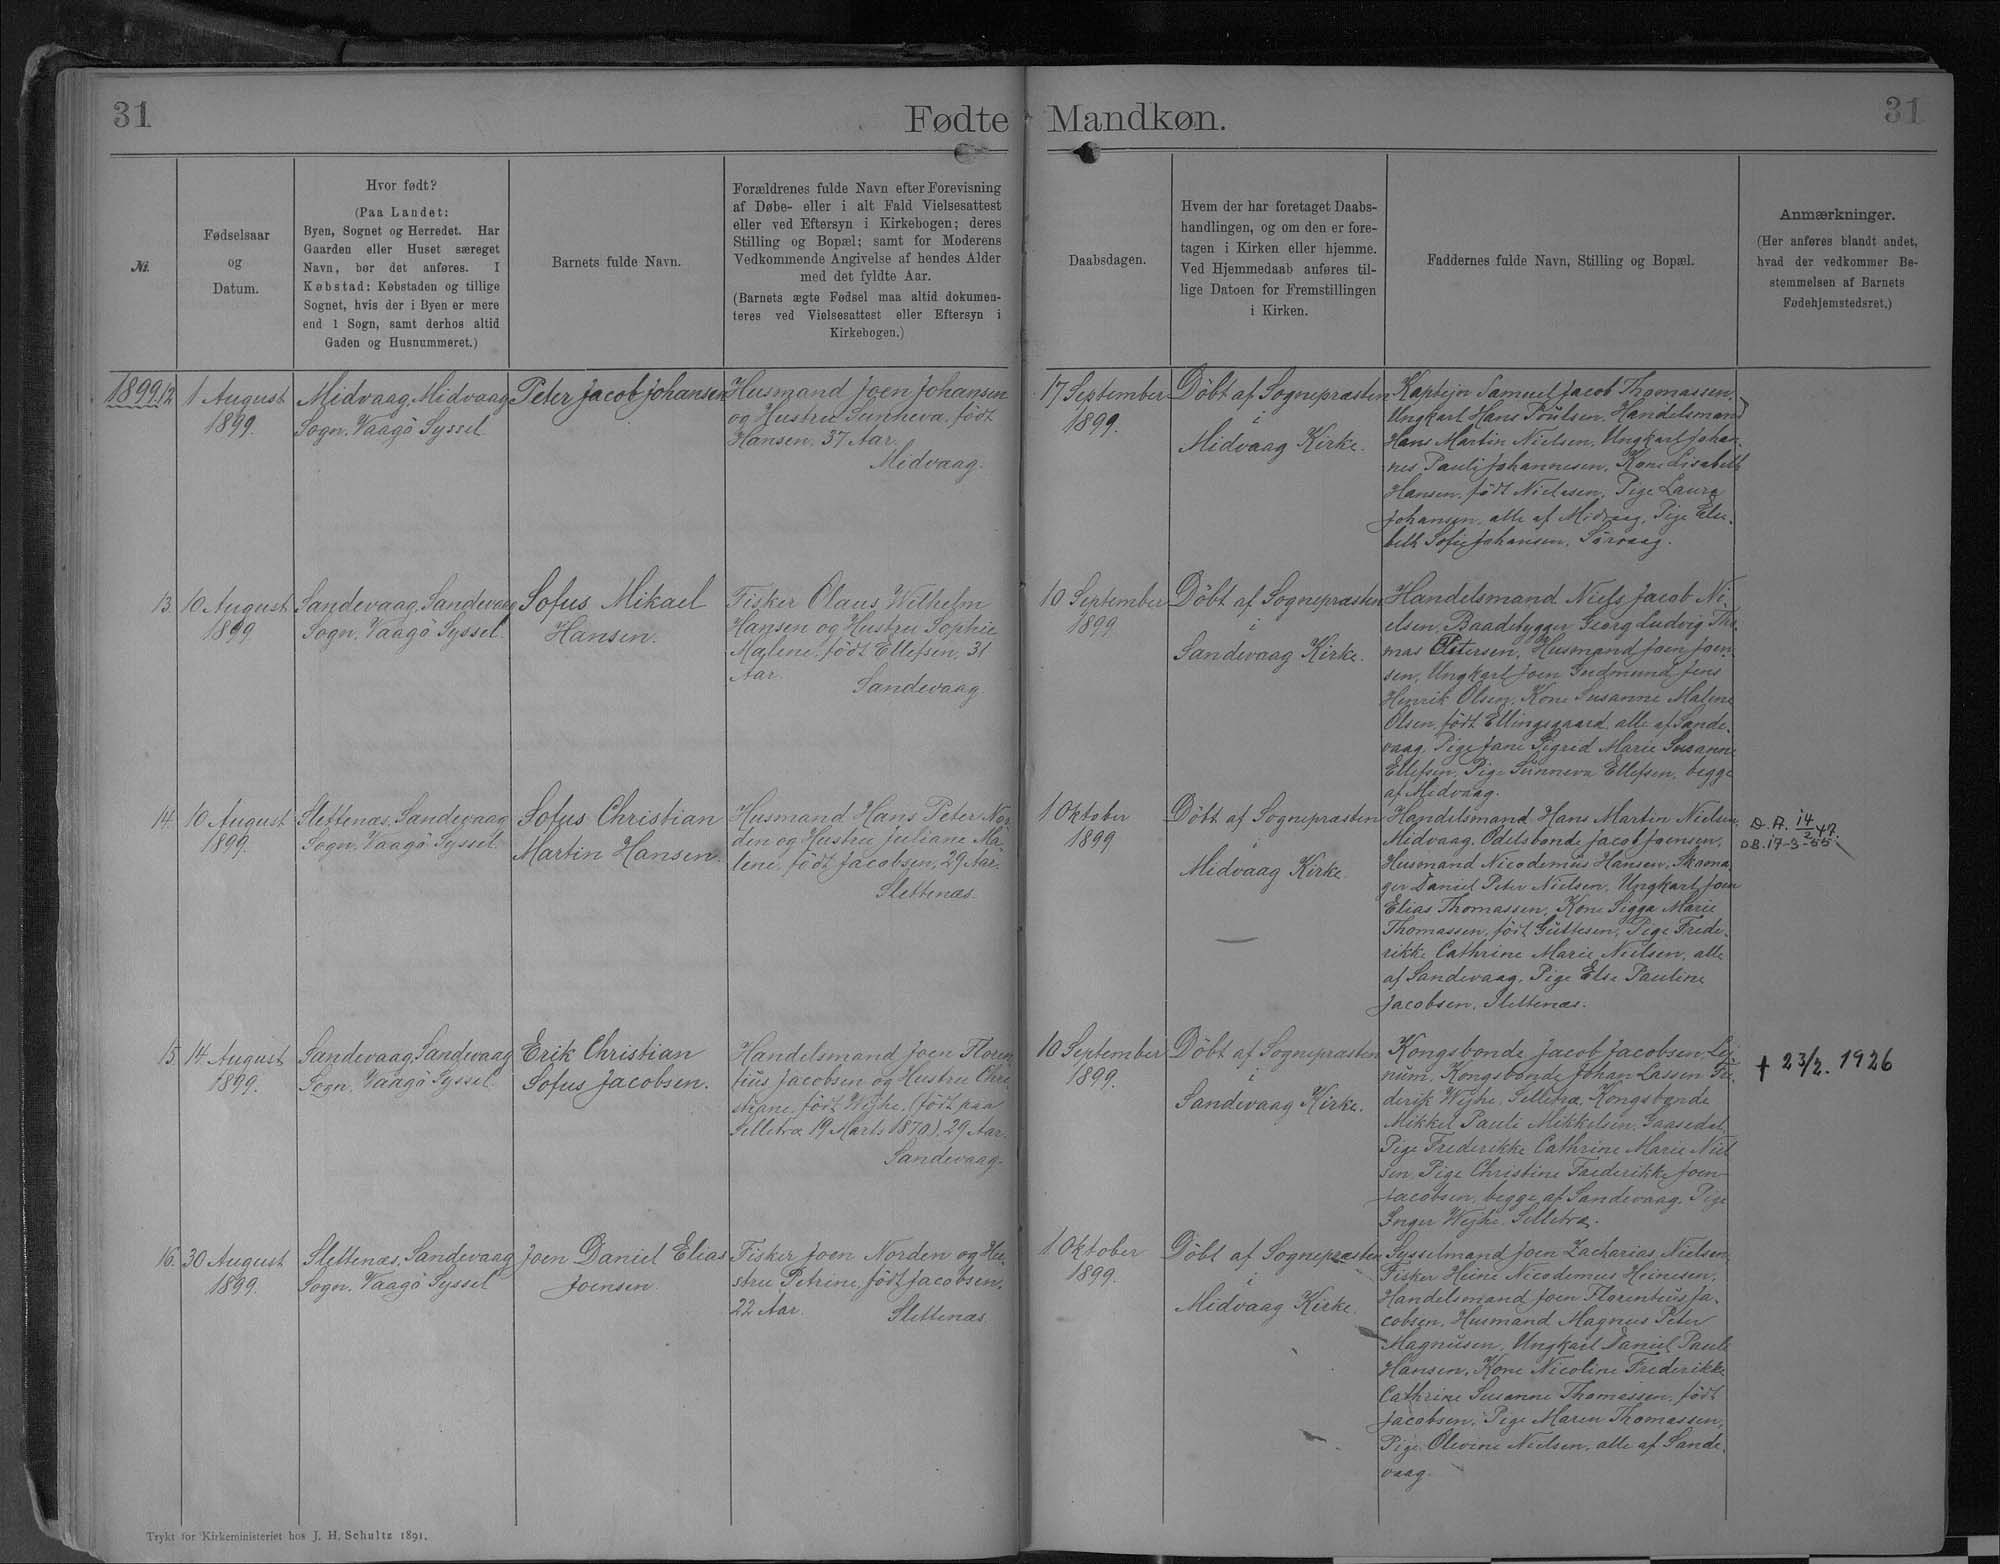 31
Fødte
Mandkøn.
31
№.
Fødselsaar
og
Datum.
Hvor født?
(Paa Landet:
Byen, Sognet og Herredet. Har
Gaarden eller Huset særeget
Navn, bør det anføres. I
Købstad: Købstaden og tillige
Sognet, hvis der i Byen er mere
end 1 Sogn, samt derhos altid
Gaden og Husnummeret.)
Barnets fulde Navn.
Forældrenes fulde Navn efter Forevisning
af Døbe- eller i alt Fald Vielsesattest
eller ved Eftersyn i Kirkebogen; deres
Stilling og Bopæl; samt for Moderens
Vedkommende Angivelse af hendes Alder
med det fyldte Aar.
(Barnets ægte Fødsel maa altid dokumen-
teres ved Vielsesattest eller Eftersyn i
Kirkebogen.)
Daabsdagen.
Hvem der har foretaget Daabs-
handlingen, og om den er fore-
tagen i Kirken eller hjemme.
Ved Hjemmedaab anføres til-
lige Datoen for Fremstillingen
i Kirken.
Faddernes fulde Navn, Stilling og Bopæl.
Anmærkninger.
(Her anføres blandt andet,
hvad der vedkommer Be-
stemmelsen af Barnets
Fødehjemstedsret.)
1899.12
1 August
1899.
Midvaag, Midvaag
Sogn, Vaagö Syssel.
Peter Jacob Johansen
Husmand Joen Johansen
og Hustru Sunneva, født
Hansen, 37 Aar.
Midvaag.
17 September
1899.
Döbt af Sognepræsten
i
Midvaag Kirke.
Kaptejn Samuel Jacob Thomassen,
Ungkarl Hans Poulsen, Handelsmand
Hans Martin Nielsen, Ungkarl Johan-
nes Pauli Johannesen, Kone Lisabeth
Hansen, født Nielsen, Pige Laura
Johansen, alle af Midvaag, Pige Else-
beth Sofie Johansen, Sörvaag.
13.
10 August
1899
Sandevaag, Sandevaag
Sogn, Vaagö Syssel.
Sofus Mikael
Hansen.
Fisker Olaus Wilhelm
Hansen og Hustru Sophie
Malene, født Ellefsen, 31
Aar.
Sandevaag.
10 September
1899.
Döbt af Sognepræsten
i
Sandevaag Kirke.
Handelsmand Niels Jacob Ni-
elsen, Baadebygger Georg Ludvig Tho-
mas Petersen, Husmand Joen Joen-
sen, Ungkarl Joen Gudmund Jens
Henrik Olsen, Kone Susanne Malene
Olsen, født Ellingsgaard, alle af Sande-
vaag, Pige Jane Sigrid Marie Susanne
Ellefsen, Pige Sunneva Ellefsen, begge
af Midvaag.
14.
10 August
1899.
Slettenæs, Sandevaag
Sogn, Vaagö Syssel.
Sofus Christian
Martin Hansen.
Husmand Hans Peter Nor-
den og Hustru Juliane Ma-
lene, født Jacobsen, 29 Aar.
Slettenæs.
1 Oktober
1899
Döbt af Sognepræsten
i
Midvaag Kirke.
Handelsmand Hans Martin Nielsen,
Midvaag, Odelsbonde Jacob Joensen,
Husmand Nicodemus Hansen, Skoma-
ger Daniel Peter Nielsen, Ungkarl Joen
Elias Thomassen, Kone Sigga Marie
Thomassen, født Guttesen, Pige Frede-
rikke Cathrine Marie Nielsen, alle
af Sandevaag, Pige Else Pauline
Jacobsen, Slettenæs.
D.A. 14/2 47.
DB. 17-3-55.
15.
14. August
1899.
Sandevaag, Sandevaag
Sogn, Vaagö Syssel.
Erik Christian
Sofus Jacobsen.
Handelsmand Joen Floren-
tius Jacobsen og Hustru Chri-
stiane, født Wejhe, (født paa
Selletræ 19 Marts 1870), 29 Aar.
Sandevaag.
10 September
1899.
Döbt af Sognepræsten
i
Sandevaag Kirke.
Kongsbonde Jacob Jacobsen, Lej-
num, Kongsbonde Johan Lassen Fre-
derik Wejhe, Selletræ, Kongsbonde
Mikkel Pauli Mikkelsen, Gaasedal,
Pige Frederikke Cathrine Marie Niel-
sen, Pige Christine Frederikke Joen
Jacobsen, begge af Sandevaag, Pige
Inger Wejhe, Selletræ.
† 23/2. 1926
16.
30 August
1899.
Slettenæs, Sandevaag
Sogn, Vaagö Syssel
Joen Daniel Elias
Joensen.
Fisker Joen Norden og Hu-
stru Petrine, født Jacobsen,
22 Aar.
Slettenæs
1 Oktober
1899.
Döbt af Sognepræsten
i
Midvaag Kirke.
Sysselmand Joen Zacharias Nielsen,
Fisker Heine Nicodemus Heinesen,
Handelsmand Joen Florentius Ja-
cobsen, Husmand Magnus Peter
Magnusen, Ungkarl Daniel Pauli
Hansen, Kone Nicoline Frederikke
Cathrine Susanne Thomassen, født
Jacobsen, Pige Maren Thomassen,
Pige Olevine Nielsen, alle af Sande-
vaag.
Trykt for Kirkeministeriet hos J. H. Schultz 1891.